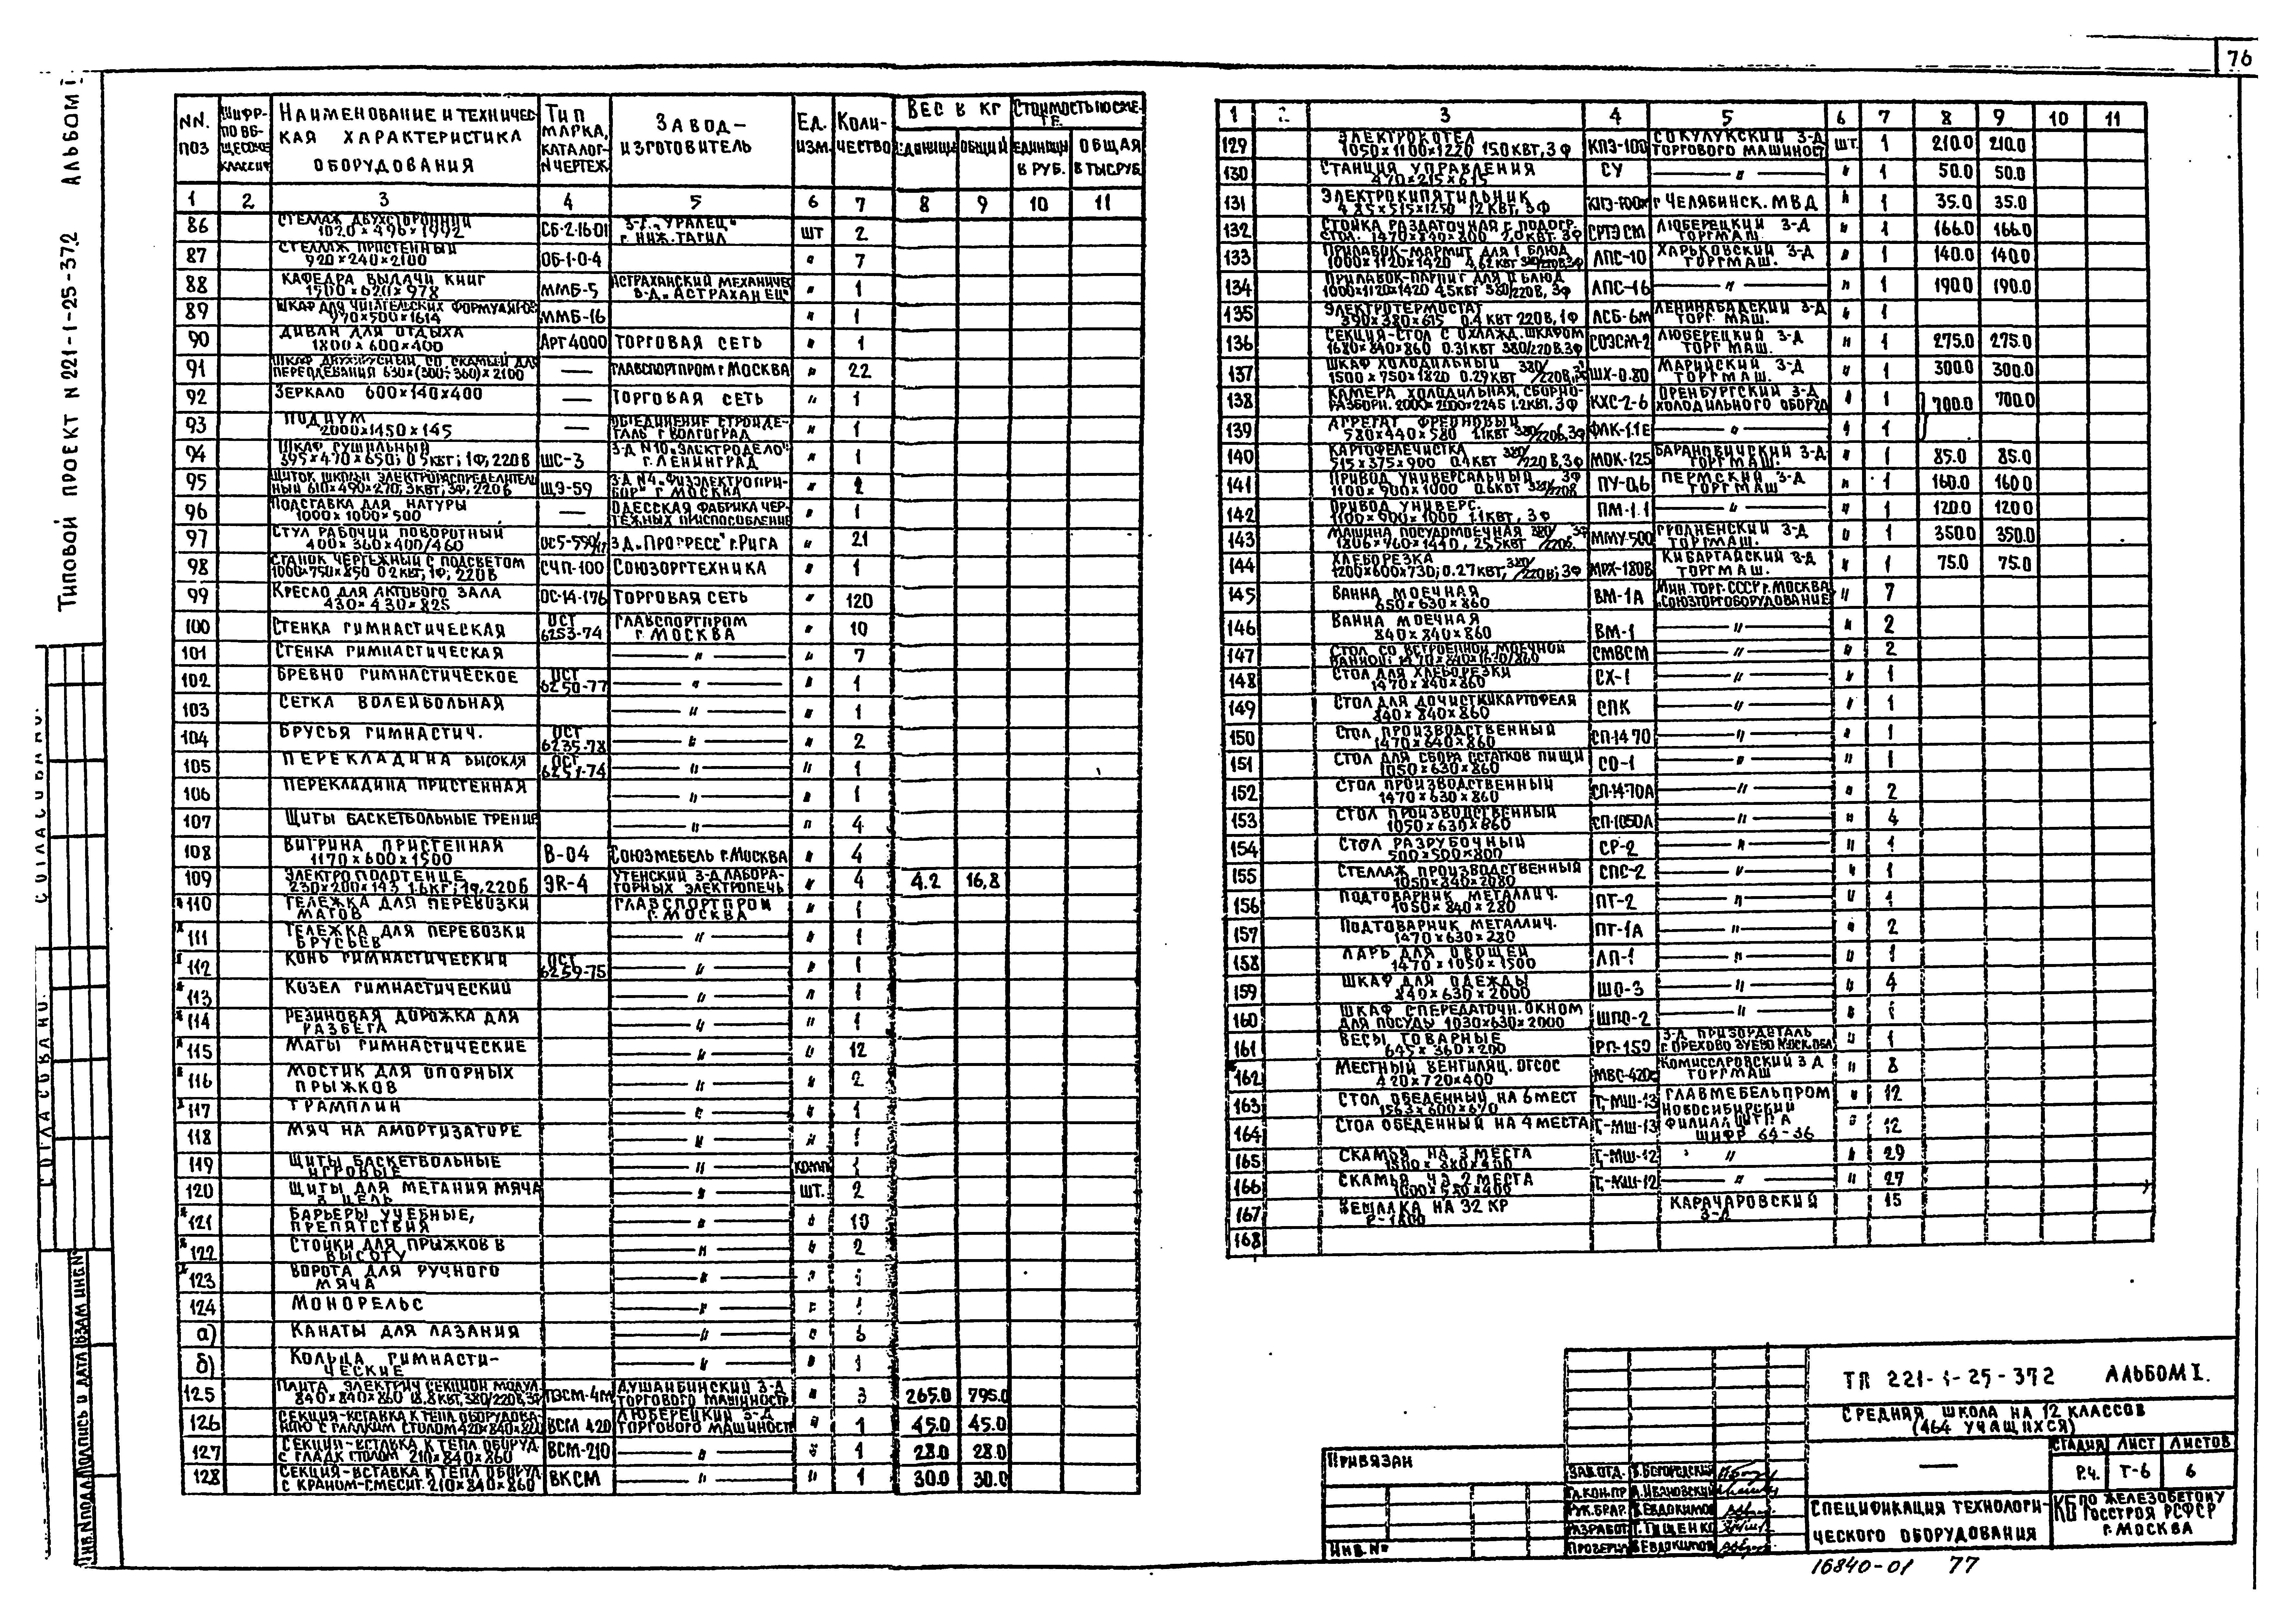 76
Типовой проект N 221-1-25-372 Альбом I
NN. поз
Наименование и техническая характеристика оборудования
Тип марка, каталог N чертеж
Завод-изготовитель
Ед. изм.
Количество
Вес в кг
единицы общий
Стоимость по смете
единицы в руб. общая в тыс.руб
1 2 3 4 5 6 7 8 9 10 11
86 Стеллаж двухсторонний 1020×496×1992 СБ-2-16-01 з-д „Уралец" г. Ниж. Тагил шт 2
87 Стеллаж пристенный 920×240×2100 ОБ-1-0-4 " 7
88 Кафедра выдачи книг 1500×620×978 ММБ-5 " 1
89 Шкаф для читательских формуляров 970×500×1614 ММБ-16 " 1
90 Диван для отдыха 1800×600×400 Арт 4000 Торговая сеть " 1
91 Главспортпром г Москва " 22
92 Зеркало 600×140×400 — Торговая сеть " 1
93 Подиум 2000×1450×145 — г Волгоград " 1
94 Шкаф сушильный 395×470×650; 0.5квт; 1ф, 220в ШС-3 з-д N10 „Электродело" г. Ленинград " 1
95 ЩЭ-59 г Москва " 2
96 Подставка для натуры 1000×1000×500 — Одесская фабрика чертежных приспособление " 1
97 Стул рабочий поворотный 400×360×400/460 з-д „Прогресс" г. Рига " 21
98 Станок чертежный с подсветом 1000×750×850 0.2квт, 1ф, 220в СЧП-100 Союзоргтехника " 1
99 Кресло для актового зала 430×430×825 ОС-14-176 Торговая сеть " 120
100 Стенка гимнастическая ОСТ 6253-74 Главспортпром г. Москва " 10
101 Стенка гимнастическая — " — " 7
102 Бревно гимнастическое ОСТ 6250-77 — " — " 1
103 Сетка волейбольная — " — " 1
104 Брусья гимнастич. ОСТ 6235-78 — " — " 2
105 Перекладина высокая ОСТ — " — " 1
106 Перекладина пристенная — " — " 1
107 Щиты баскетбольные — " — " 4
108 Витрина пристенная 1170×600×1500 В-04 Союзмебель г. Москва " 4
109 Электрополотенце ЭК-4 " 4 4.2 16,8
110 Тележка для перевозки матов Главспортпром г. Москва " 1
111 Тележка для перевозки брусьев — " — " 1
112 Конь гимнастический ОСТ 6259-75 — " — " 1
113 Козел гимнастический — " — " 1
114 Резиновая дорожка для разбега — " — " 1
115 Маты гимнастические — " — " 12
116 Мостик для опорных прыжков — " — " 2
117 Трамплин — " — " 1
118 Мяч на амортизаторе — " — " 1
119 Щиты баскетбольные игровые — " — компл 1
120 Щиты для метания мяча в цель — " — шт. 2
121 Барьеры учебные, препятствия — " — " 10
122 Стойки для прыжков в высоту — " — " 2
123 Ворота для ручного мяча — " — " 1
124 Монорельс — " — " 1
а) Канаты для лазания — " — "
б) Кольца гимнастические — " — " 1
125 Душанбинский з-д торгового машиностр " 3 265.0 795.0
126 ВСМ 420 Люберецкий з-д торгового машиностр " 1 45.0 45.0
127 Секция-вставка к тепл. оборуд. с гладк столом 210×840×860 ВСМ-210 — " — " 1 28.0 28.0
128 Секция-вставка к тепл оборуд с краном-смесит. 210×840×860 ВКСМ — " — " 1 30.0 30.0
1 3 4 5 6 7 8 9 10 11
129 Электрокотел 1050×1100×1220 15.0 квт, 3ф КПЭ-100 Сокулукский з-д торгового машиност шт. 1 210.0 210.0
130 Станция управления 470×215×615 СУ — " — " 1 50.0 50.0
131 Электрокипятильник 485×515×1250 12 квт, 3ф г Челябинск. МВД " 1 35.0 35.0
132 Стойка раздаточная с подогр. стол. 1470×840×800 2.0 квт. 3ф СРТЭСМ Люберецкий з-д торгмаш. " 1 166.0 166.0
133 Прилавок-мармит для I блюд 1000×1120×1420 ЛПС-10 Харьковский з-д торгмаш. " 1 140.0 140.0
134 1000×1120×1420 4.5квт 380/220в, 3ф ЛПС-16 — " — " 1 190.0 190.0
135 Электротермостат 390×380×615 0.4 квт 220в, 1ф ЛСБ-6м Ленинабадский з-д торг. маш. " 1
136 Секция-стол с охлажд. шкафом 1680×840×860 0.31квт 380/220в.3ф СОЭСМ-2 Люберецкий з-д торг маш. " 1 275.0 275.0
137 Шкаф холодильный 1500×750×1820 0.29квт 380/220в, 3ф ШХ-0.80 Марийский з-д торгмаш. " 1 300.0 300.0
138 Камера холодильная, сборно-разборн. 2000×2000×2245 1.2квт. 3ф КХС-2-6 Оренбургский з-д холодильного оборуд " 1 700.0 700.0
139 Агрегат фреоновый 580×440×580 1.1квт 380/220в, 3ф ФАК-1.1Е — " — " 1
140 Картофелечистка 515×375×900 0.4 квт 380/220 в, 3ф МОК-125 Барановичский з-д торгмаш. " 1 85.0 85.0
141 Привод универсальный 1100×900×1000 0.6квт 380/220в 3ф ПУ-0,6 Пермский з-д торгмаш " 1 160.0 160.0
142 Привод универс. 1.1квт, 3ф ПМ-1.1 — " — " 1 120.0 120.0
143 Машина посудомоечная ММУ-500 Гродненский з-д торгмаш. " 1 350.0 350.0
144 Хлеборезка 1200×600×730; 0.27квт, 380/220в; 3ф МРХ-180В Кибартайский з-д торгмаш. " 1 75.0 75.0
145 Ванна моечная 650×630×860 ВМ-1А Мин. торг. СССР г. Москва „Союзторгоборудование" " 7
146 Ванна моечная 840×840×860 ВМ-1 — " — " 2
147 Стол со встроенной моечной ванной СМВСМ — " — " 2
148 Стол для хлеборезки 1470×840×860 СХ-1 — " — " 1
149 Стол для доочистки картофеля 840×840×860 СПК — " — " 1
150 Стол производственный 1470×840×860 СП-1470 — " — " 1
151 Стол для сбора остатков пищи 1050×630×860 СО-1 — " — " 1
152 Стол производственный 1470×630×860 СП-1470А — " — " 2
153 Стол производственный 1050×630×860 СП-1050А — " — " 4
154 Стол разрубочный 500×500×800 СР-2 — " — " 1
155 Стеллаж производственный 1050×840×2080 СПС-2 — " — " 1
156 Подтоварник металлич. 1050×840×280 ПТ-2 — " — " 1
157 Подтоварник металлич. 1470×630×280 ПТ-1А — " — " 2
158 Ларь для овощей 1470×1050×1500 ЛП-1 — " — " 1
159 Шкаф для одежды 840×630×2000 ШО-3 — " — " 4
160 Шкаф с передаточн. окном для посуды 1030×630×2000 ШПО-2 — " — "
161 Весы товарные 645×360×200 РП-150 " 1
162 Местный вентиляц. отсос 420×720×400 Комиссаровский з д торгмаш " 8
163 Стол обеденный на 6 мест Т-МШ-13 Главмебельпром Новосибирский филиал " 12
164 Стол обеденный на 4 места Т-МШ-13 шифр 64-36 " 12
165 Скамья на 3 места Т-МШ-12 " " 29
166 Скамья на 2 места Т-МШ-12 — " — " 27
167 Вешалка на 32 кр Карачаровский з-д 15
168
Согласовано.
Согласовано.
Инв. N подл. Подпись и дата Взам инв N
Привязан
Инв. N°
Зав. отд. В. Богородский
Гл. кон. пр А. Ивановский
Рук. бриг. В Евдокимов
Разработ Г. Тищенко
Проверил В Евдокимов
ТП 221-1-25-372 Альбом I.
Средняя школа на 12 классов
(464 учащихся)
Стадия Лист Листов
Р.Ч. Т-6 6
Спецификация технологического оборудования
КБ по железобетону Госстроя РСФСР г. Москва
16840-01 77